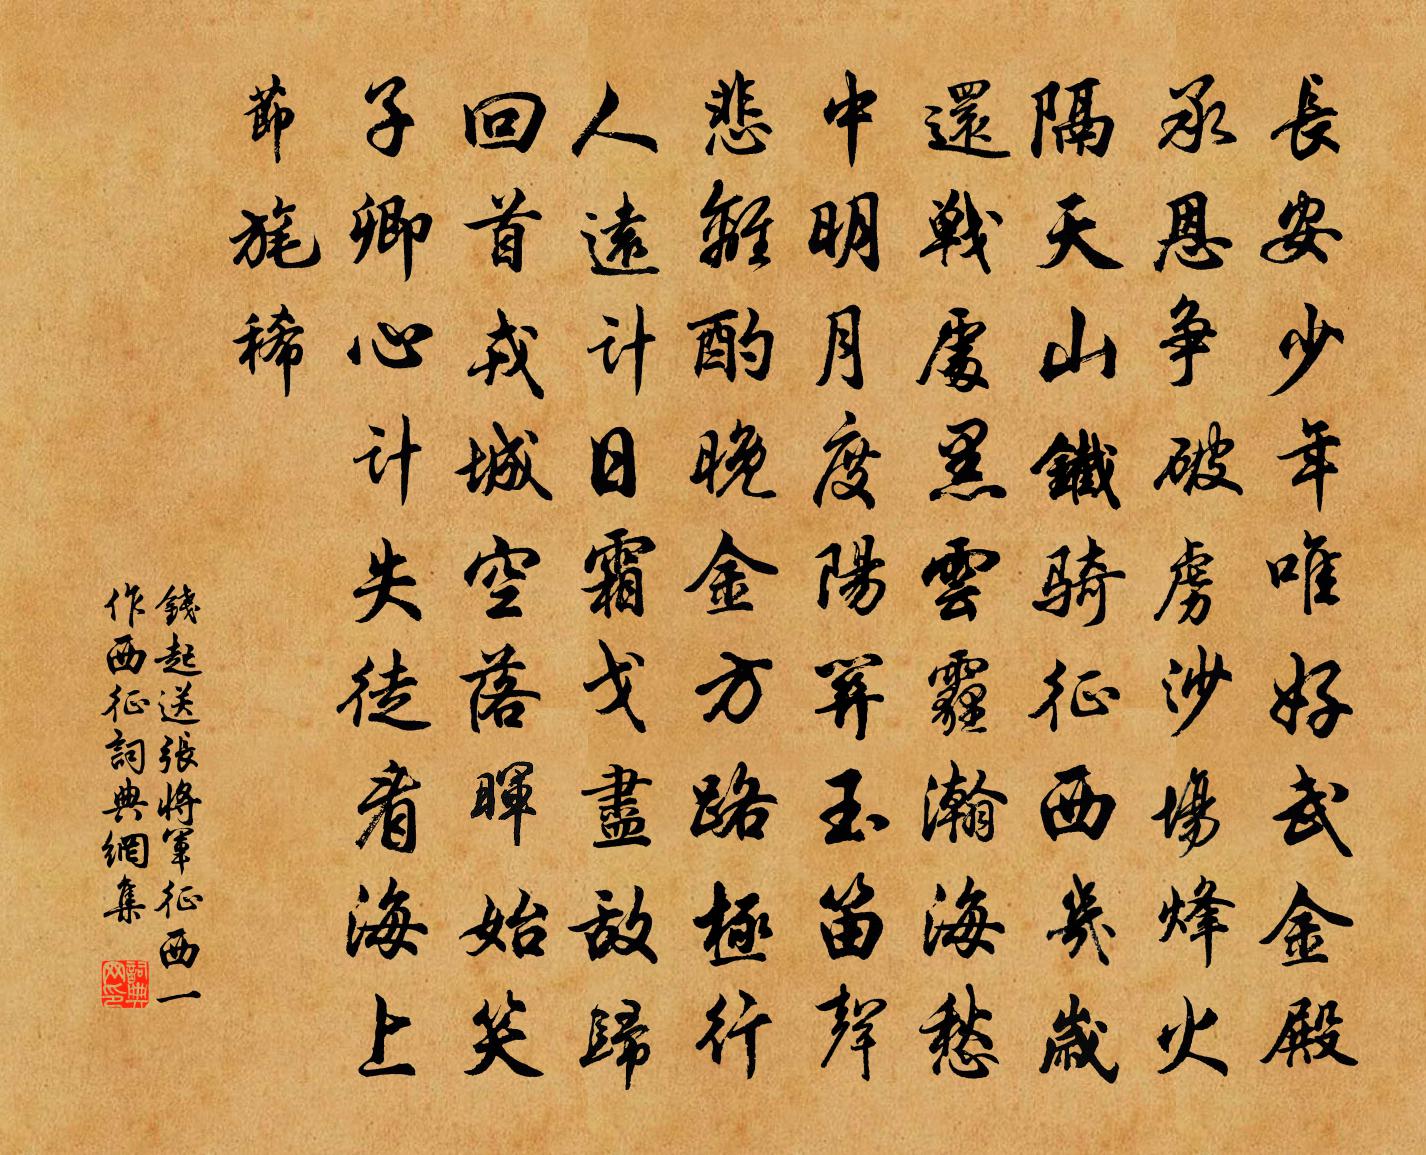 長安少年唯好武金殿
承恩爭破虜沙場烽火
隔天山鐵騎征西幾歲
還戰處黑雲霾瀚海愁
中明月度陽關玉笛聲
悲離酌晚金方路極行
人遠計日霜戈盡敵歸
回首戎城空落暉始笑
子卿心計失徒看海上
節旄稀
錢起送張將軍征西一
作西征詞典網集
詞典网印